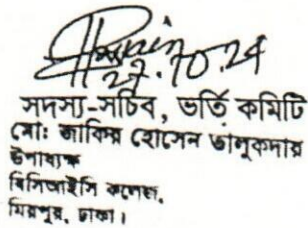 27.10.24
সদস্য-সচিব, ভর্তি কমিটি
মো: জাকির হোসেন তালুকদার
উপাধ্যক্ষ
বিসিআইসি কলেজ,
মিরপুর, ঢাকা।